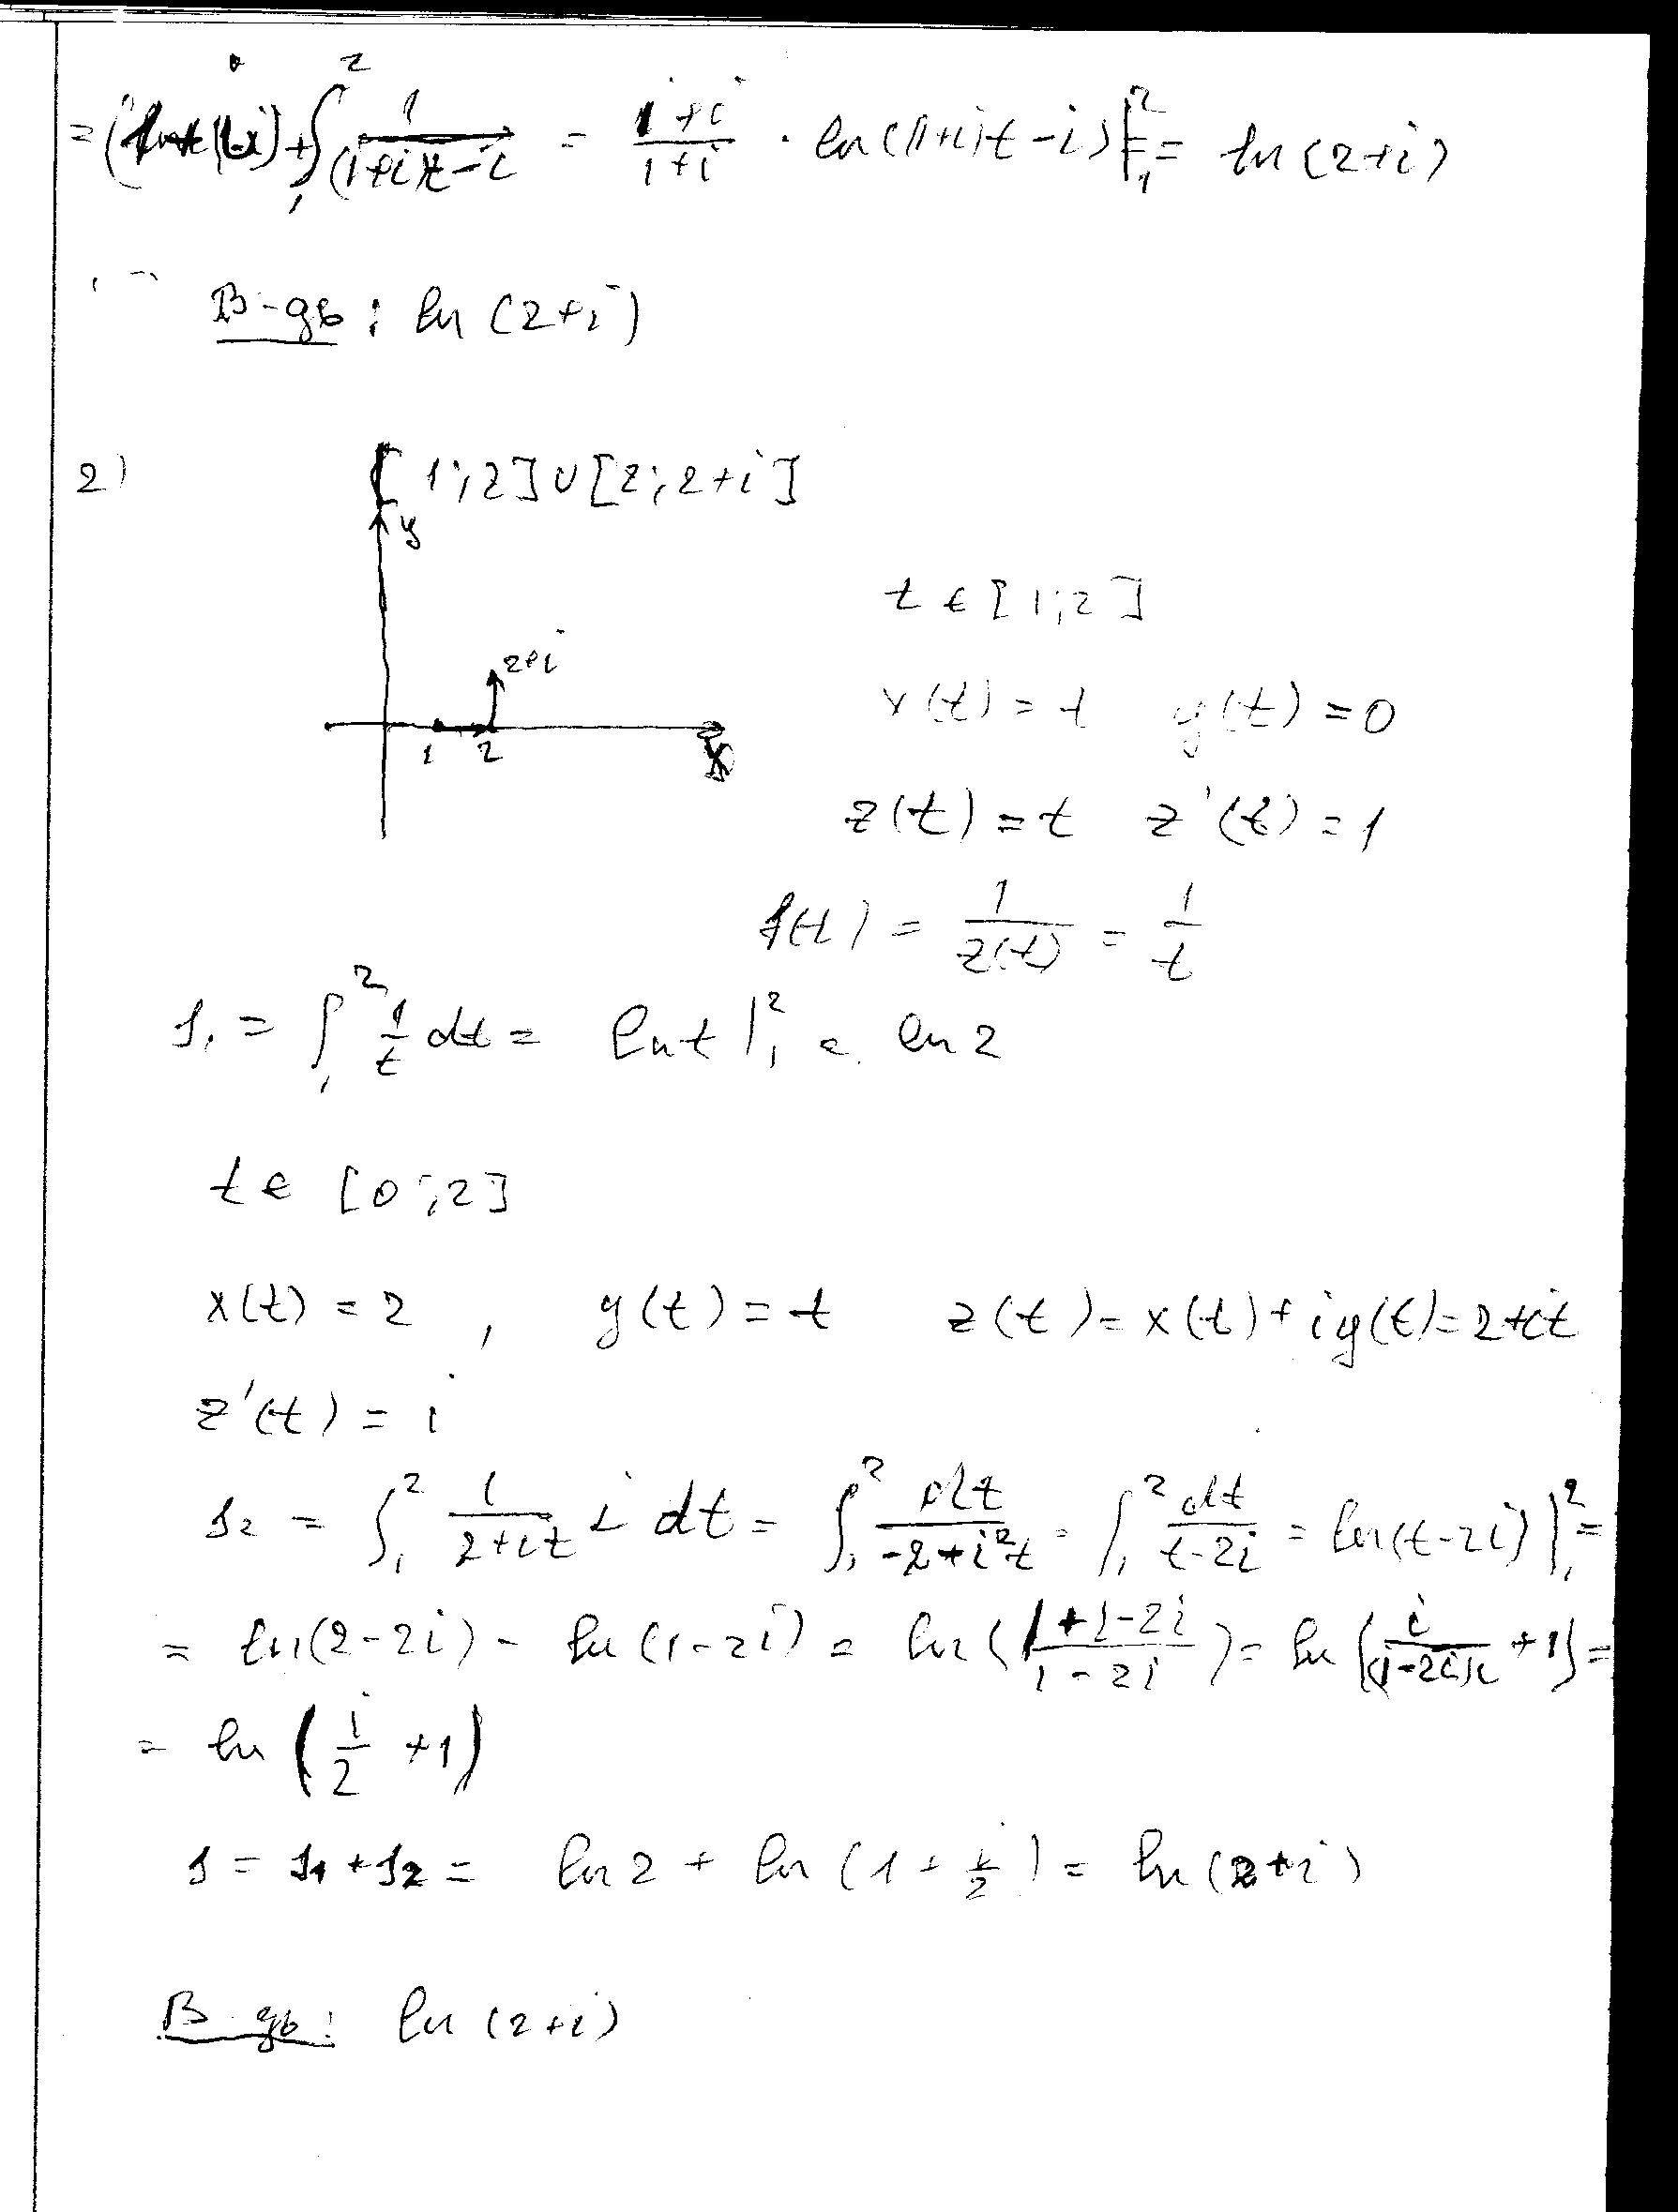 = (1+i) ∫₁² 1/((1+i)t-i) = (1+i)/(1+i) · ln((1+i)t-i)|₁² = ln(2+i)
В-дь: ln(2+i)
2) [1;2]∪[2;2+i]
y
t ∈ [1;2]
2+i
x(t)=t y(t)=0
1 2 x
z(t)=t z'(t)=1
f(t) = 1/z(t) = 1/t
J₁ = ∫₁² 1/t dt = ln t|₁² = ln 2
t ∈ [0;2]
x(t)=2, y(t)=t z(t)=x(t)+iy(t)=2+it
z'(t)=i
J₂ = ∫₁² 1/(2+it) i dt = ∫₁² dt/(-2+i²t) = ∫₁² dt/(t-2i) = ln(t-2i)|₁² =
= ln(2-2i) - ln(1-2i) = ln((1+1-2i)/(1-2i)) = ln(i/((1-2i)i)+1) =
= ln(i/2+1)
J = J₁+J₂ = ln 2 + ln(1+i/2) = ln(2+i)
В-дь: ln(2+i)